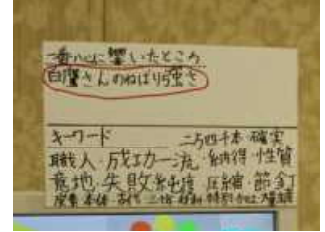 一番心に響いたところ
白鷹さんのねばり強さ
キーワード
二千四千本・確実
職人・成功・一流・納得・性質
意地・失敗・純度・圧縮・節・釘